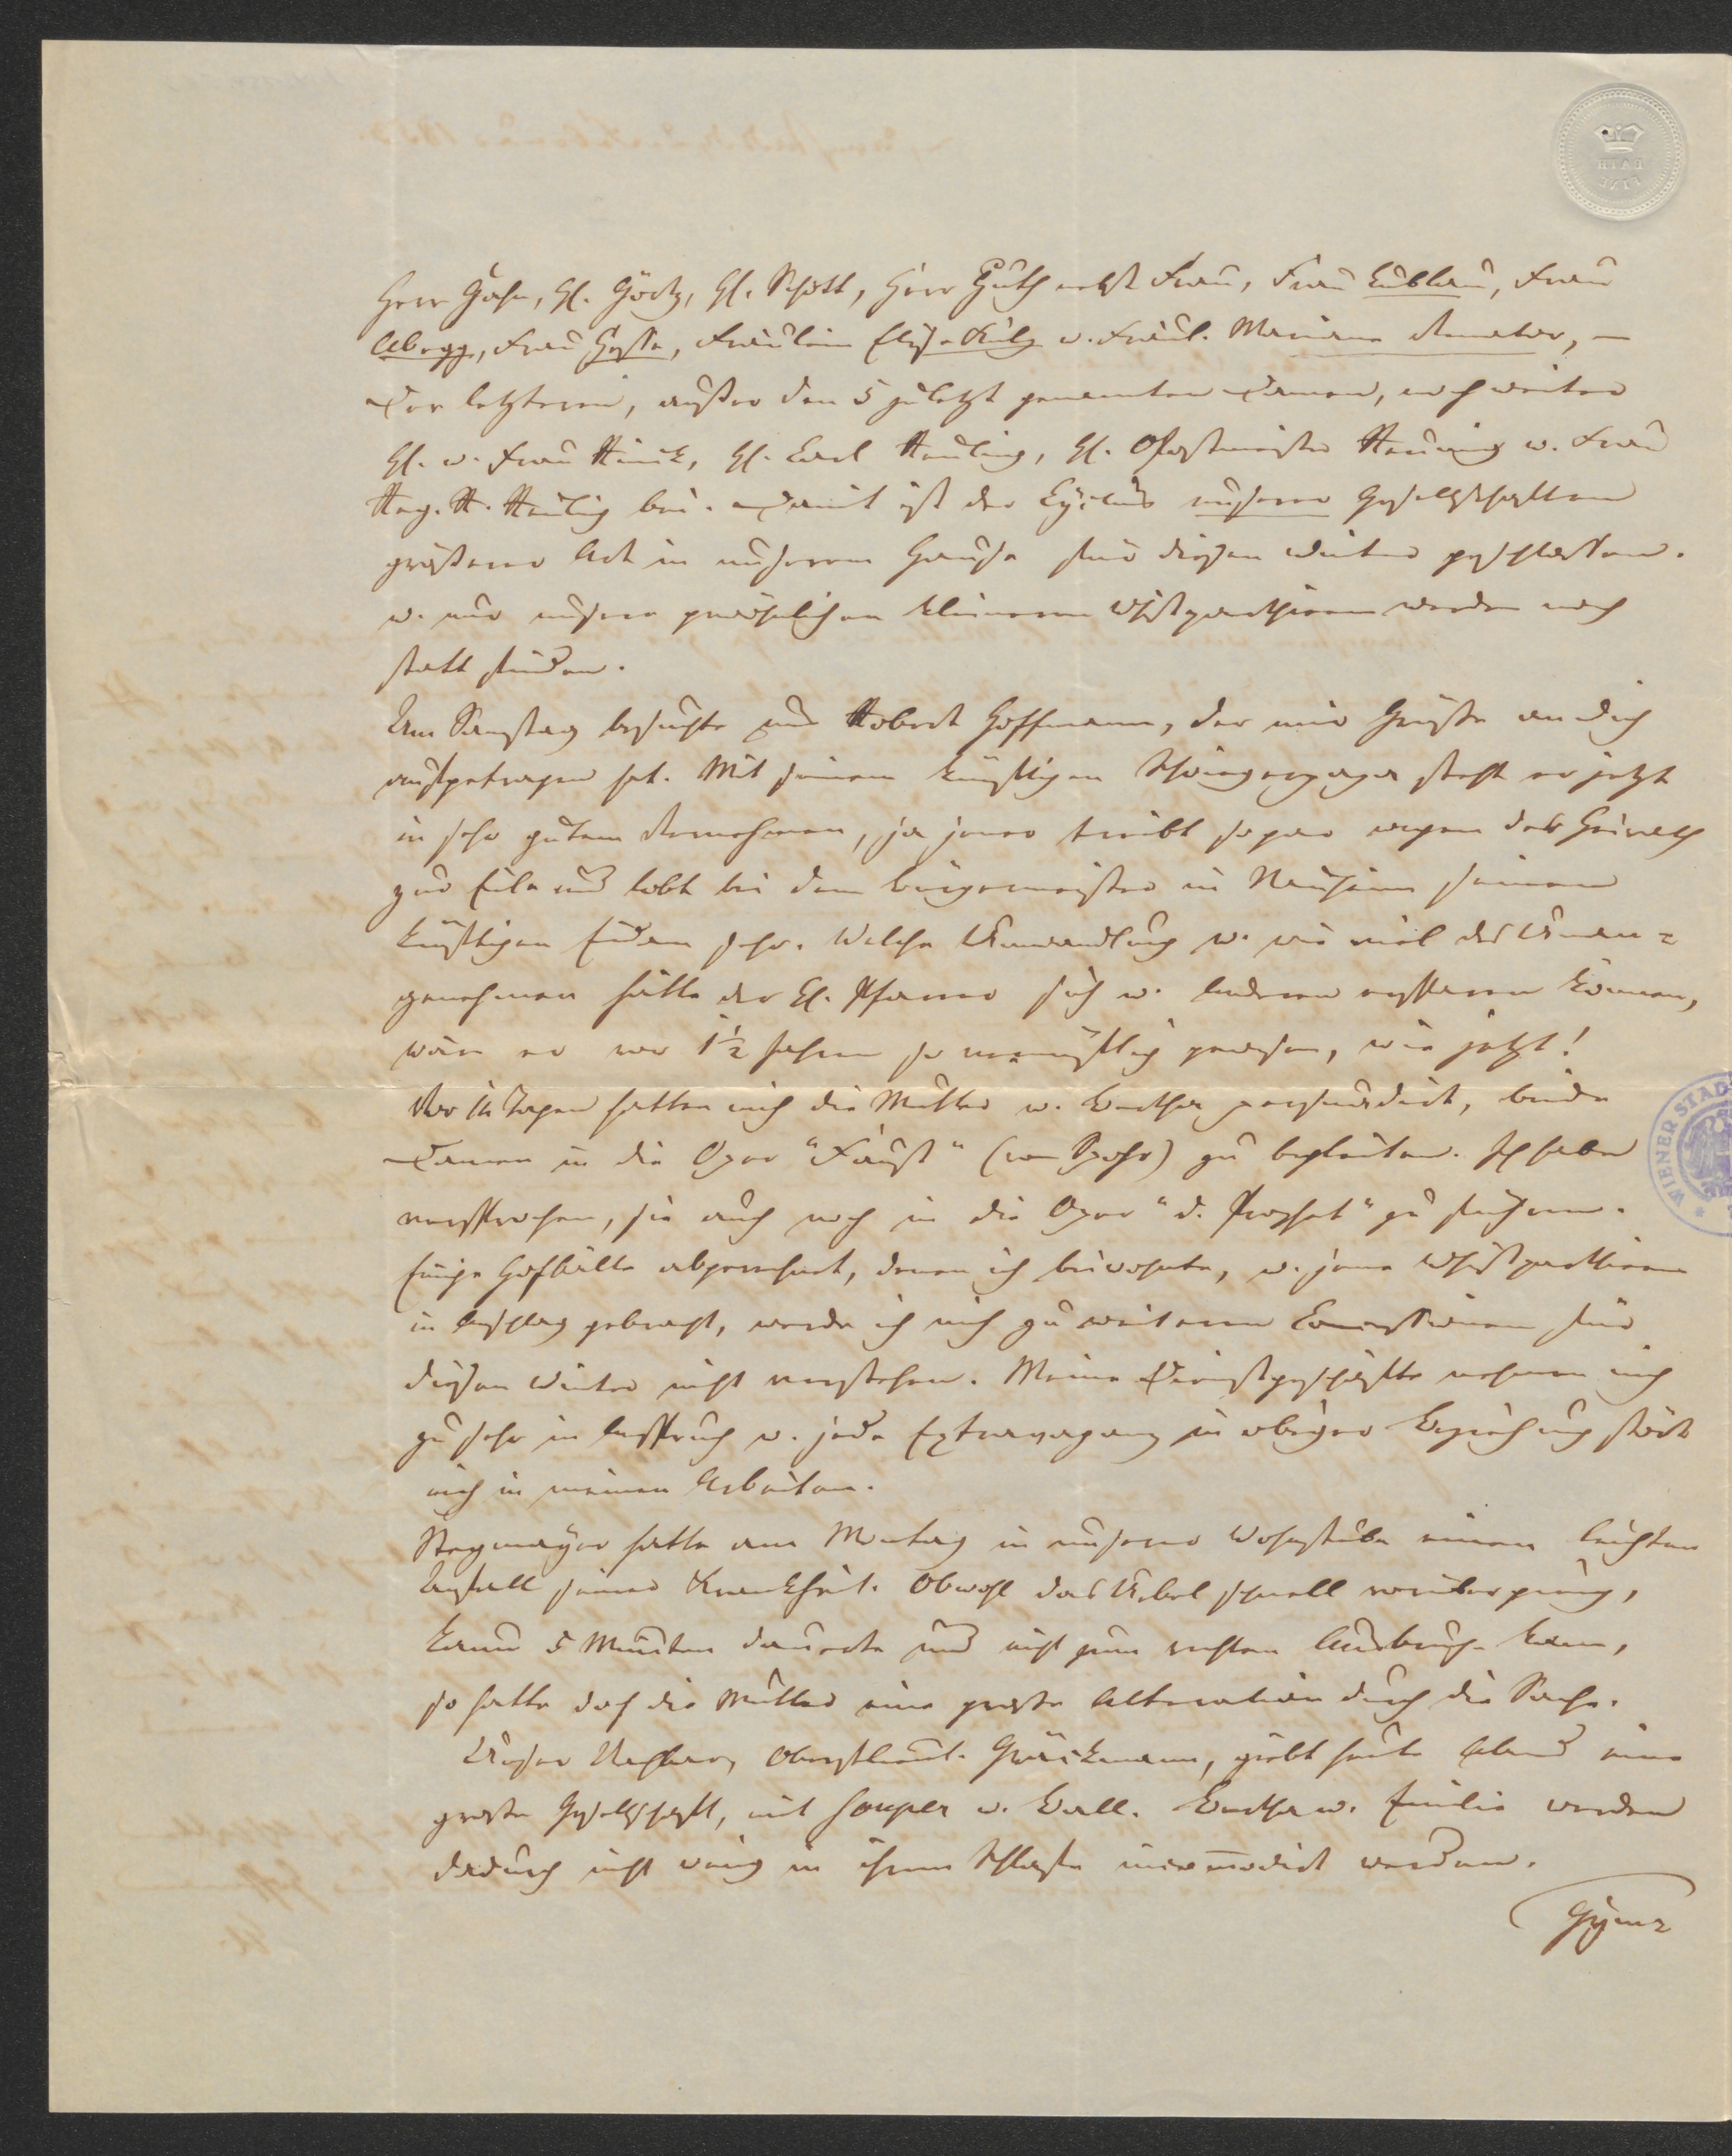 BATH
Herr Hahn, H. Görtz, H. Schott, Herr Huth nebst Frau, Frau Kublau, Frau
Abegg, Frau Hesse, Fräulein Elise Külz u. Fräul. Mariane —
Der letzteren, außer den 5 zuletzt genannten Damen, noch weiter
H. u. Frau Rinck, H. Carl Reuling, H. Ofostmeister u. Frau
Reg. R. bei. Damit ist der Cyclus unserer Gesellschaften
größerer Art in unserem Hause für diesen Winter geschlossen.
u. nur unsere gewöhnlichen kleineren Whistparthieen werden noch
statt finden.
Am Samstag besuchte uns Robert Hoffmann, der mir Grüße an dich
aufgetragen hat. Mit seinem künftigen Schwiegerpapa steht er jetzt
in sehr gutem Vernehmen, ja jener treibt sogar wegen der Heirath
zur Eile und lobt bei dem Bürgermeister in seinen
künftigen Eidam sehr. Welche Umwandlung u. wie viel des Unan=
genehmen hätte der H. Pfarrer sich u. Anderen ersparen können,
wäre er vor 1½ Jahren so vernünftig gewesen, wie jetzt!
Vor 14 Tagen hatten mich die Mutter u. Bertha persuadirt, beide
Damen in die Oper "Faust" (von Spohr) zu begleiten. Ich habe
versprochen, sie auch noch in die Oper "d. Prophet" zu führen.
Einige Hofbälle abgerechnet, denen ich beiwohnte, u. jene Whistparthieen
in Anschlag gebracht, werde ich mich zu weiteren Concessionen für
diesen Winter nicht verstehen. Meine Dienstgeschäfte nehmen mich
zu sehr in Anspruch u. jede Extravaganz in obiger Beziehung stört
mich in meinen Arbeiten.
Stegmayer hatte am Montag in unserer Wohnstube einen leichten
Anfall seiner Krankheit. Obwohl das Uebel schnell vorüberging,
kaum 5 Minuten dauerte und nicht zum rechten Ausbruche kam,
so hatte doch die Mutter eine große Alteration durch die Sache.
Unser Nachbar, Oberstlieut. giebt heute Abend eine
große Gesellschaft, mit Souper u. Ball. Bertha u. Emilie werden
dadurch nicht wenig in ihrem Schlafe incom̅odirt werden.
WIENER STAD